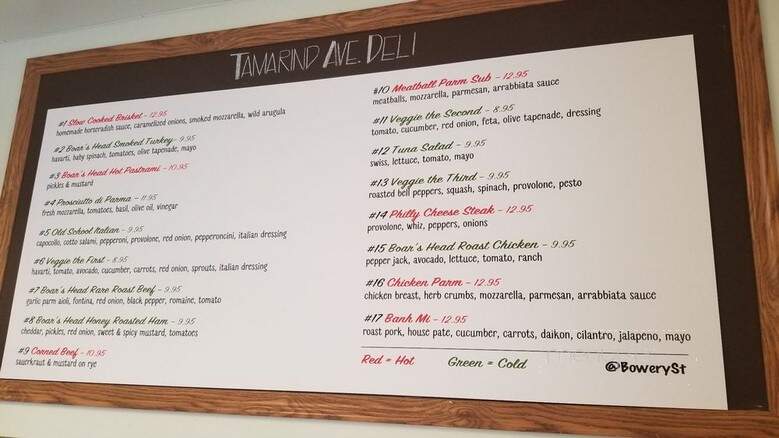 TAMARIND AVE. DELI
#1 Slow Cooked Brisket - 12.95
homemade horseradish sauce, caramelized onions, smoked mozzarella, wild arugula
#2 Boar's Head Smoked Turkey - 9.95
havarti, baby spinach, tomatoes, olive tapenade, mayo
#3 Boar's Head Hot Pastrami - 10.95
pickles & mustard
#4 Prosciutto di Parma - 11.95
fresh mozzarella, tomatoes, basil, olive oil, vinegar
#5 Old School Italian - 9.95
capocollo, cotto salami, pepperoni, provolone, red onion, pepperoncini, italian dressing
#6 Veggie the First - 8.95
havarti, tomato, avocado, cucumber, carrots, red onion, sprouts, italian dressing
#7 Boar's Head Rare Roast Beef - 9.95
garlic parm aioli, fontina, red onion, black pepper, romaine, tomato
#8 Boar's Head Honey Roasted Ham - 9.95
cheddar, pickles, red onion, sweet & spicy mustard, tomatoes
#9 Corned Beef - 10.95
sauerkraut & mustard on rye
#10 Meatball Parm Sub - 12.95
meatballs, mozzarella, parmesan, arrabbiata sauce
#11 Veggie the Second - 8.95
tomato, cucumber, red onion, feta, olive tapenade, dressing
#12 Tuna Salad - 9.95
swiss, lettuce, tomato, mayo
#13 Veggie the Third - 9.95
roasted bell peppers, squash, spinach, provolone, pesto
#14 Philly Cheese Steak - 12.95
provolone, whiz, peppers, onions
#15 Boar's Head Roast Chicken - 9.95
pepper jack, avocado, lettuce, tomato, ranch
#16 Chicken Parm - 12.95
chicken breast, herb crumbs, mozzarella, parmesan, arrabbiata sauce
#17 Banh Mi - 12.95
roast pork, house pate, cucumber, carrots, daikon, cilantro, jalapeno, mayo
Red = Hot Green = Cold
@BowerySt